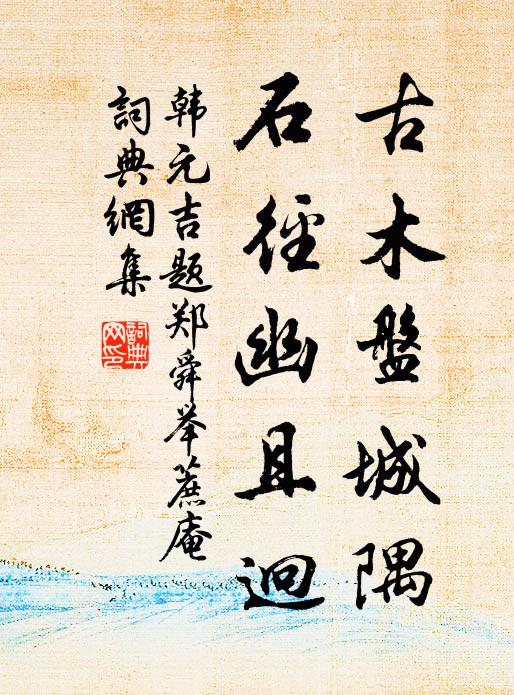 古木盤城隅
石徑幽且迥
韩元吉题郑舜举蔗庵
詞典網集
詞典網印